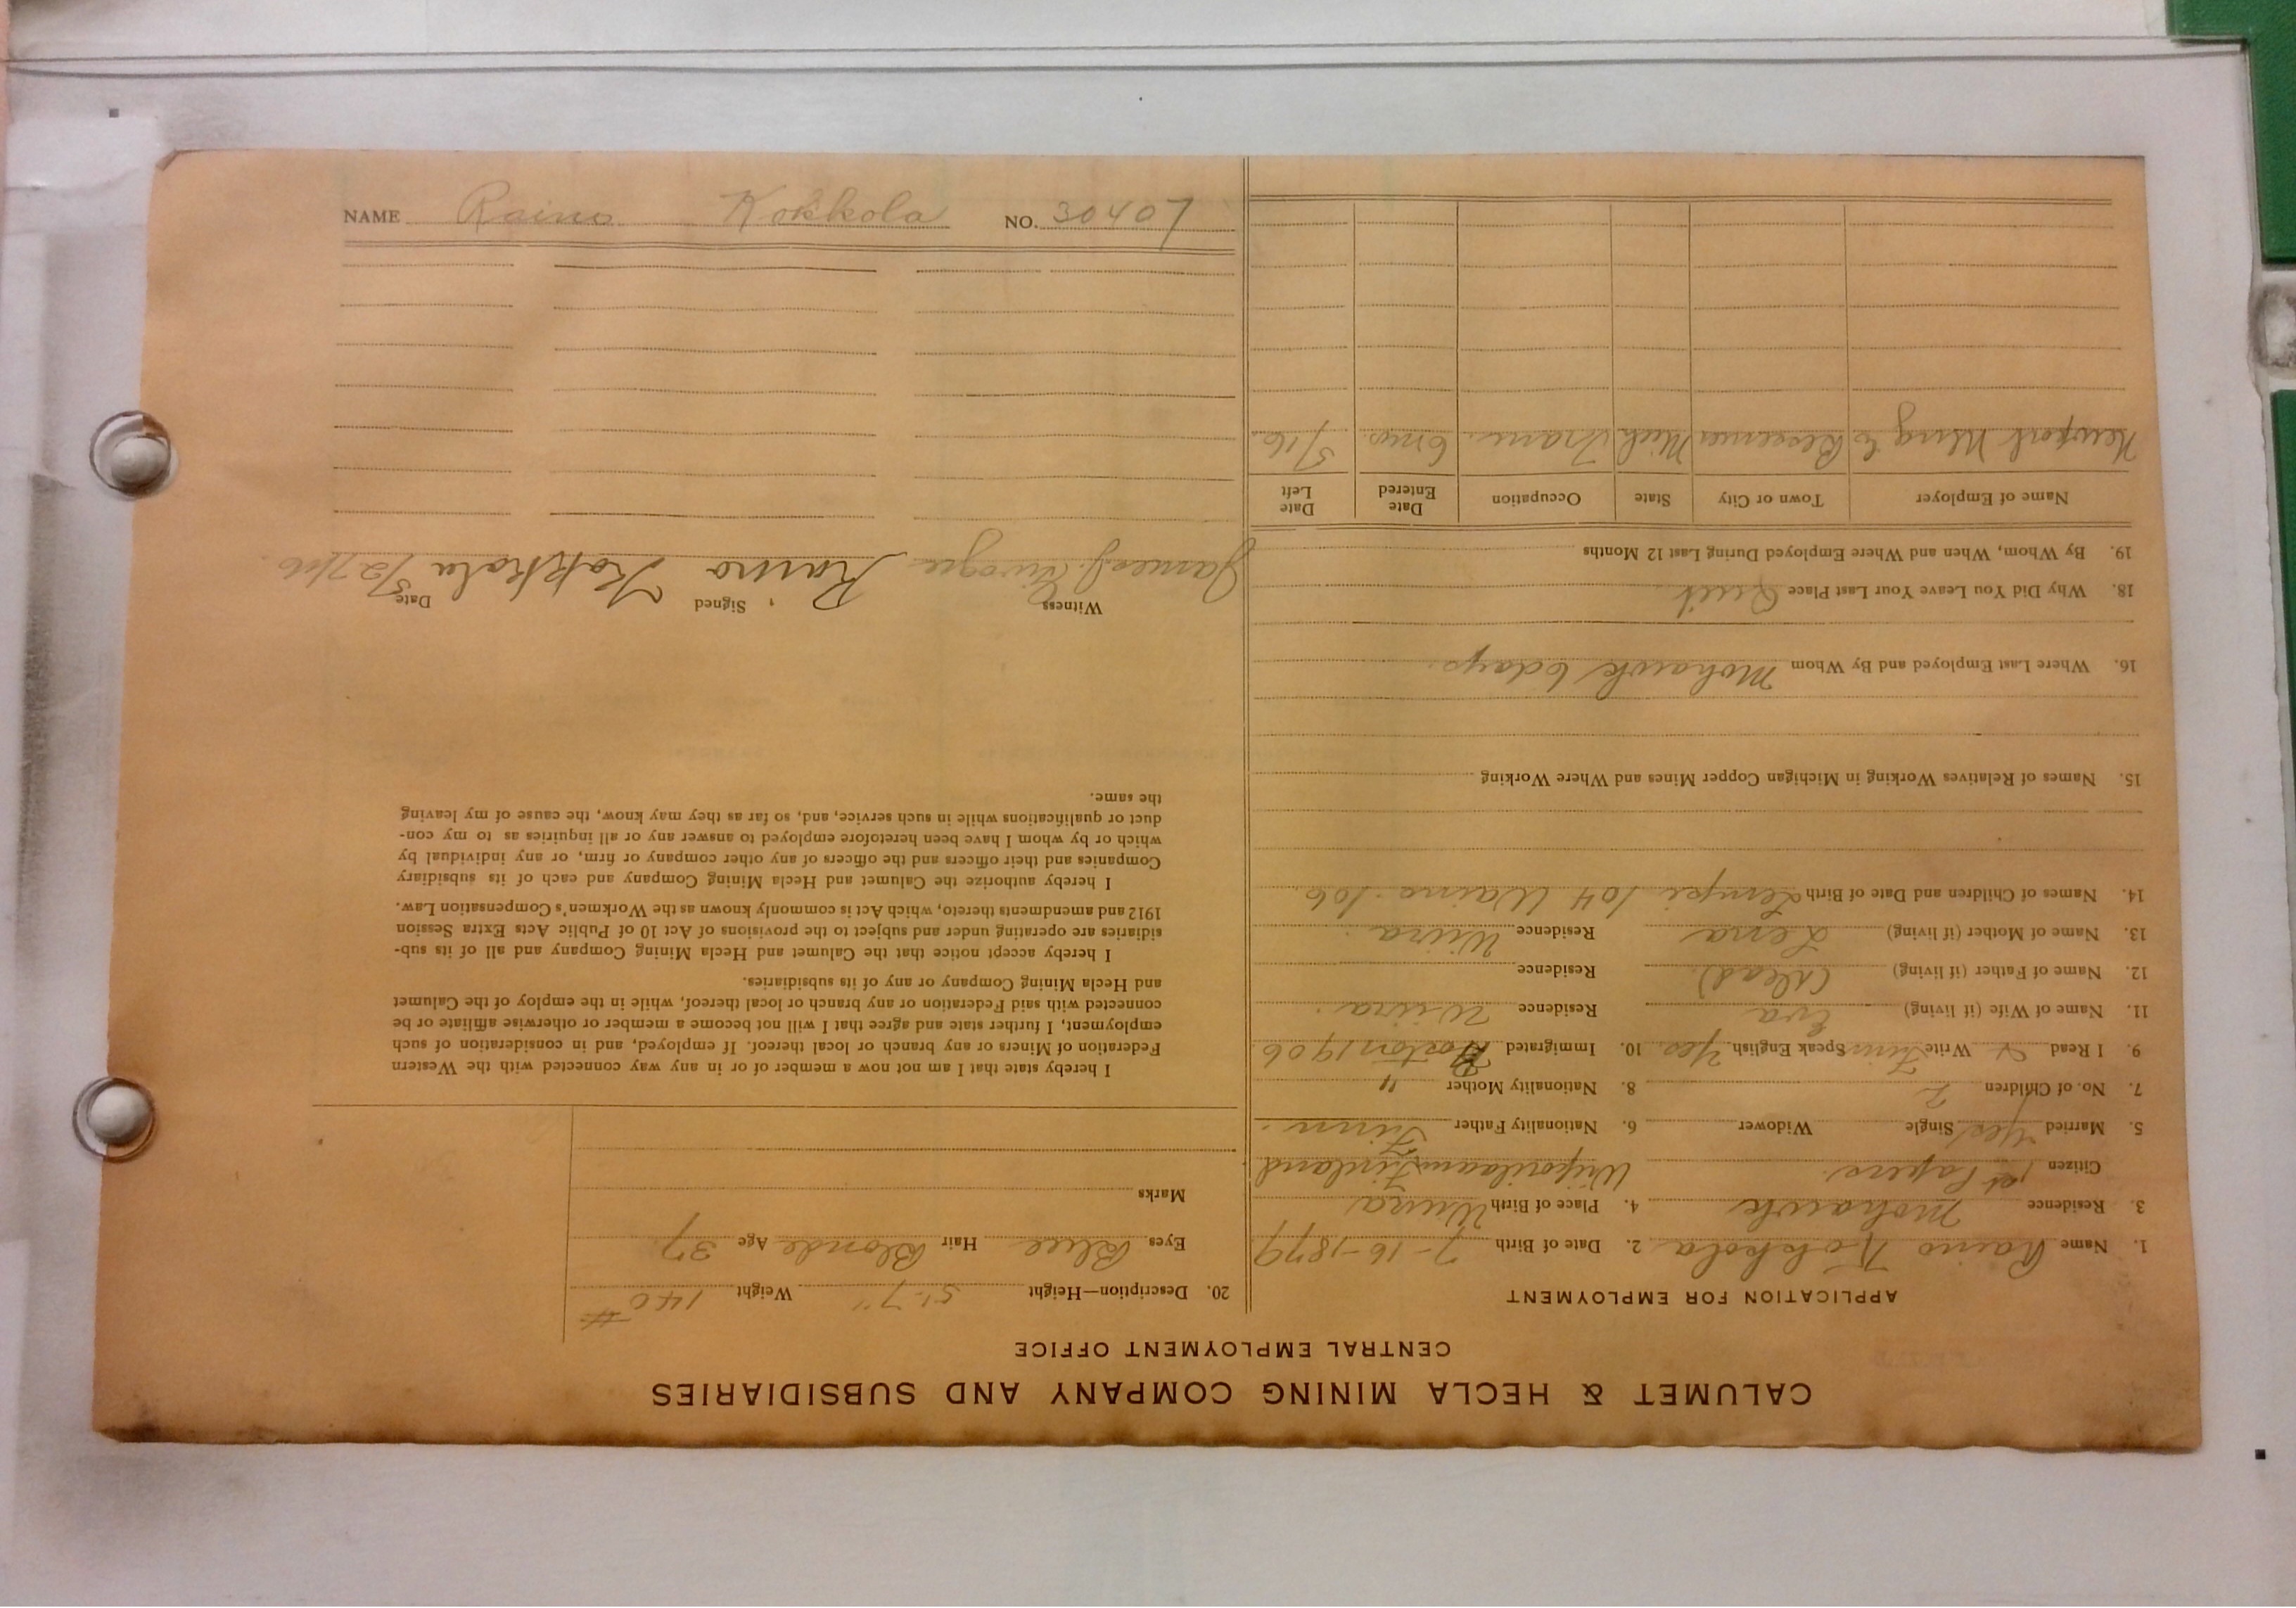 CALUMET & HECLA MINING COMPANY AND SUBSIDIARIES
CENTRAL EMPLOYMENT OFFICE
APPLICATION FOR EMPLOYMENT
1. Name Raino Kokkola 2. Date of Birth 7-16-1879
3. Residence Mohawk 4. Place of Birth
Citizen 1st Papers. Finland
5. Married yes Single Widower 6. Nationality Father Finn.
7. No. of Children 2 8. Nationality Mother "
9. I Read & Write Finn Speak English Yes. 10. Immigrated Boston 1906
11. Name of Wife (if living) Eva Residence
12. Name of Father (if living) (dead) Residence
13. Name of Mother (if living) Lena Residence
14. Names of Children and Date of Birth Lempi 104 Waino. 106
15. Names of Relatives Working in Michigan Copper Mines and Where Working
16. Where Last Employed and By Whom Mohawk 6 days.
18. Why Did You Leave Your Last Place Quit
19. By Whom, When and Where Employed During Last 12 Months
Name of Employer Town or City State Occupation Date Entered Date Left
Newport Mng Co Bessemer Mich Tram. 6 mos. 5/16
20. Description—Height 5'-7" Weight 140 #
Eyes Blue Hair Blonde Age 37
Marks
I hereby state that I am not now a member of or in any way connected with the Western
Federation of Miners or any branch or local thereof. If employed, and in consideration of such
employment, I further state and agree that I will not become a member or otherwise affiliate or be
connected with said Federation or any branch or local thereof, while in the employ of the Calumet
and Hecla Mining Company or any of its subsidiaries.
I hereby accept notice that the Calumet and Hecla Mining Company and all of its sub-
sidiaries are operating under and subject to the provisions of Act 10 of Public Acts Extra Session
1912 and amendments thereto, which Act is commonly known as the Workmen's Compensation Law.
I hereby authorize the Calumet and Hecla Mining Company and each of its subsidiary
Companies and their officers and the officers of any other company or firm, or any individual by
which or by whom I have been heretofore employed to answer any or all inquiries as to my con-
duct or qualifications while in such service, and, so far as they may know, the cause of my leaving
the same.
Witness Signed Date
James J. Raino Kokkola 5/27/16
NAME Raino Kokkola NO. 30407